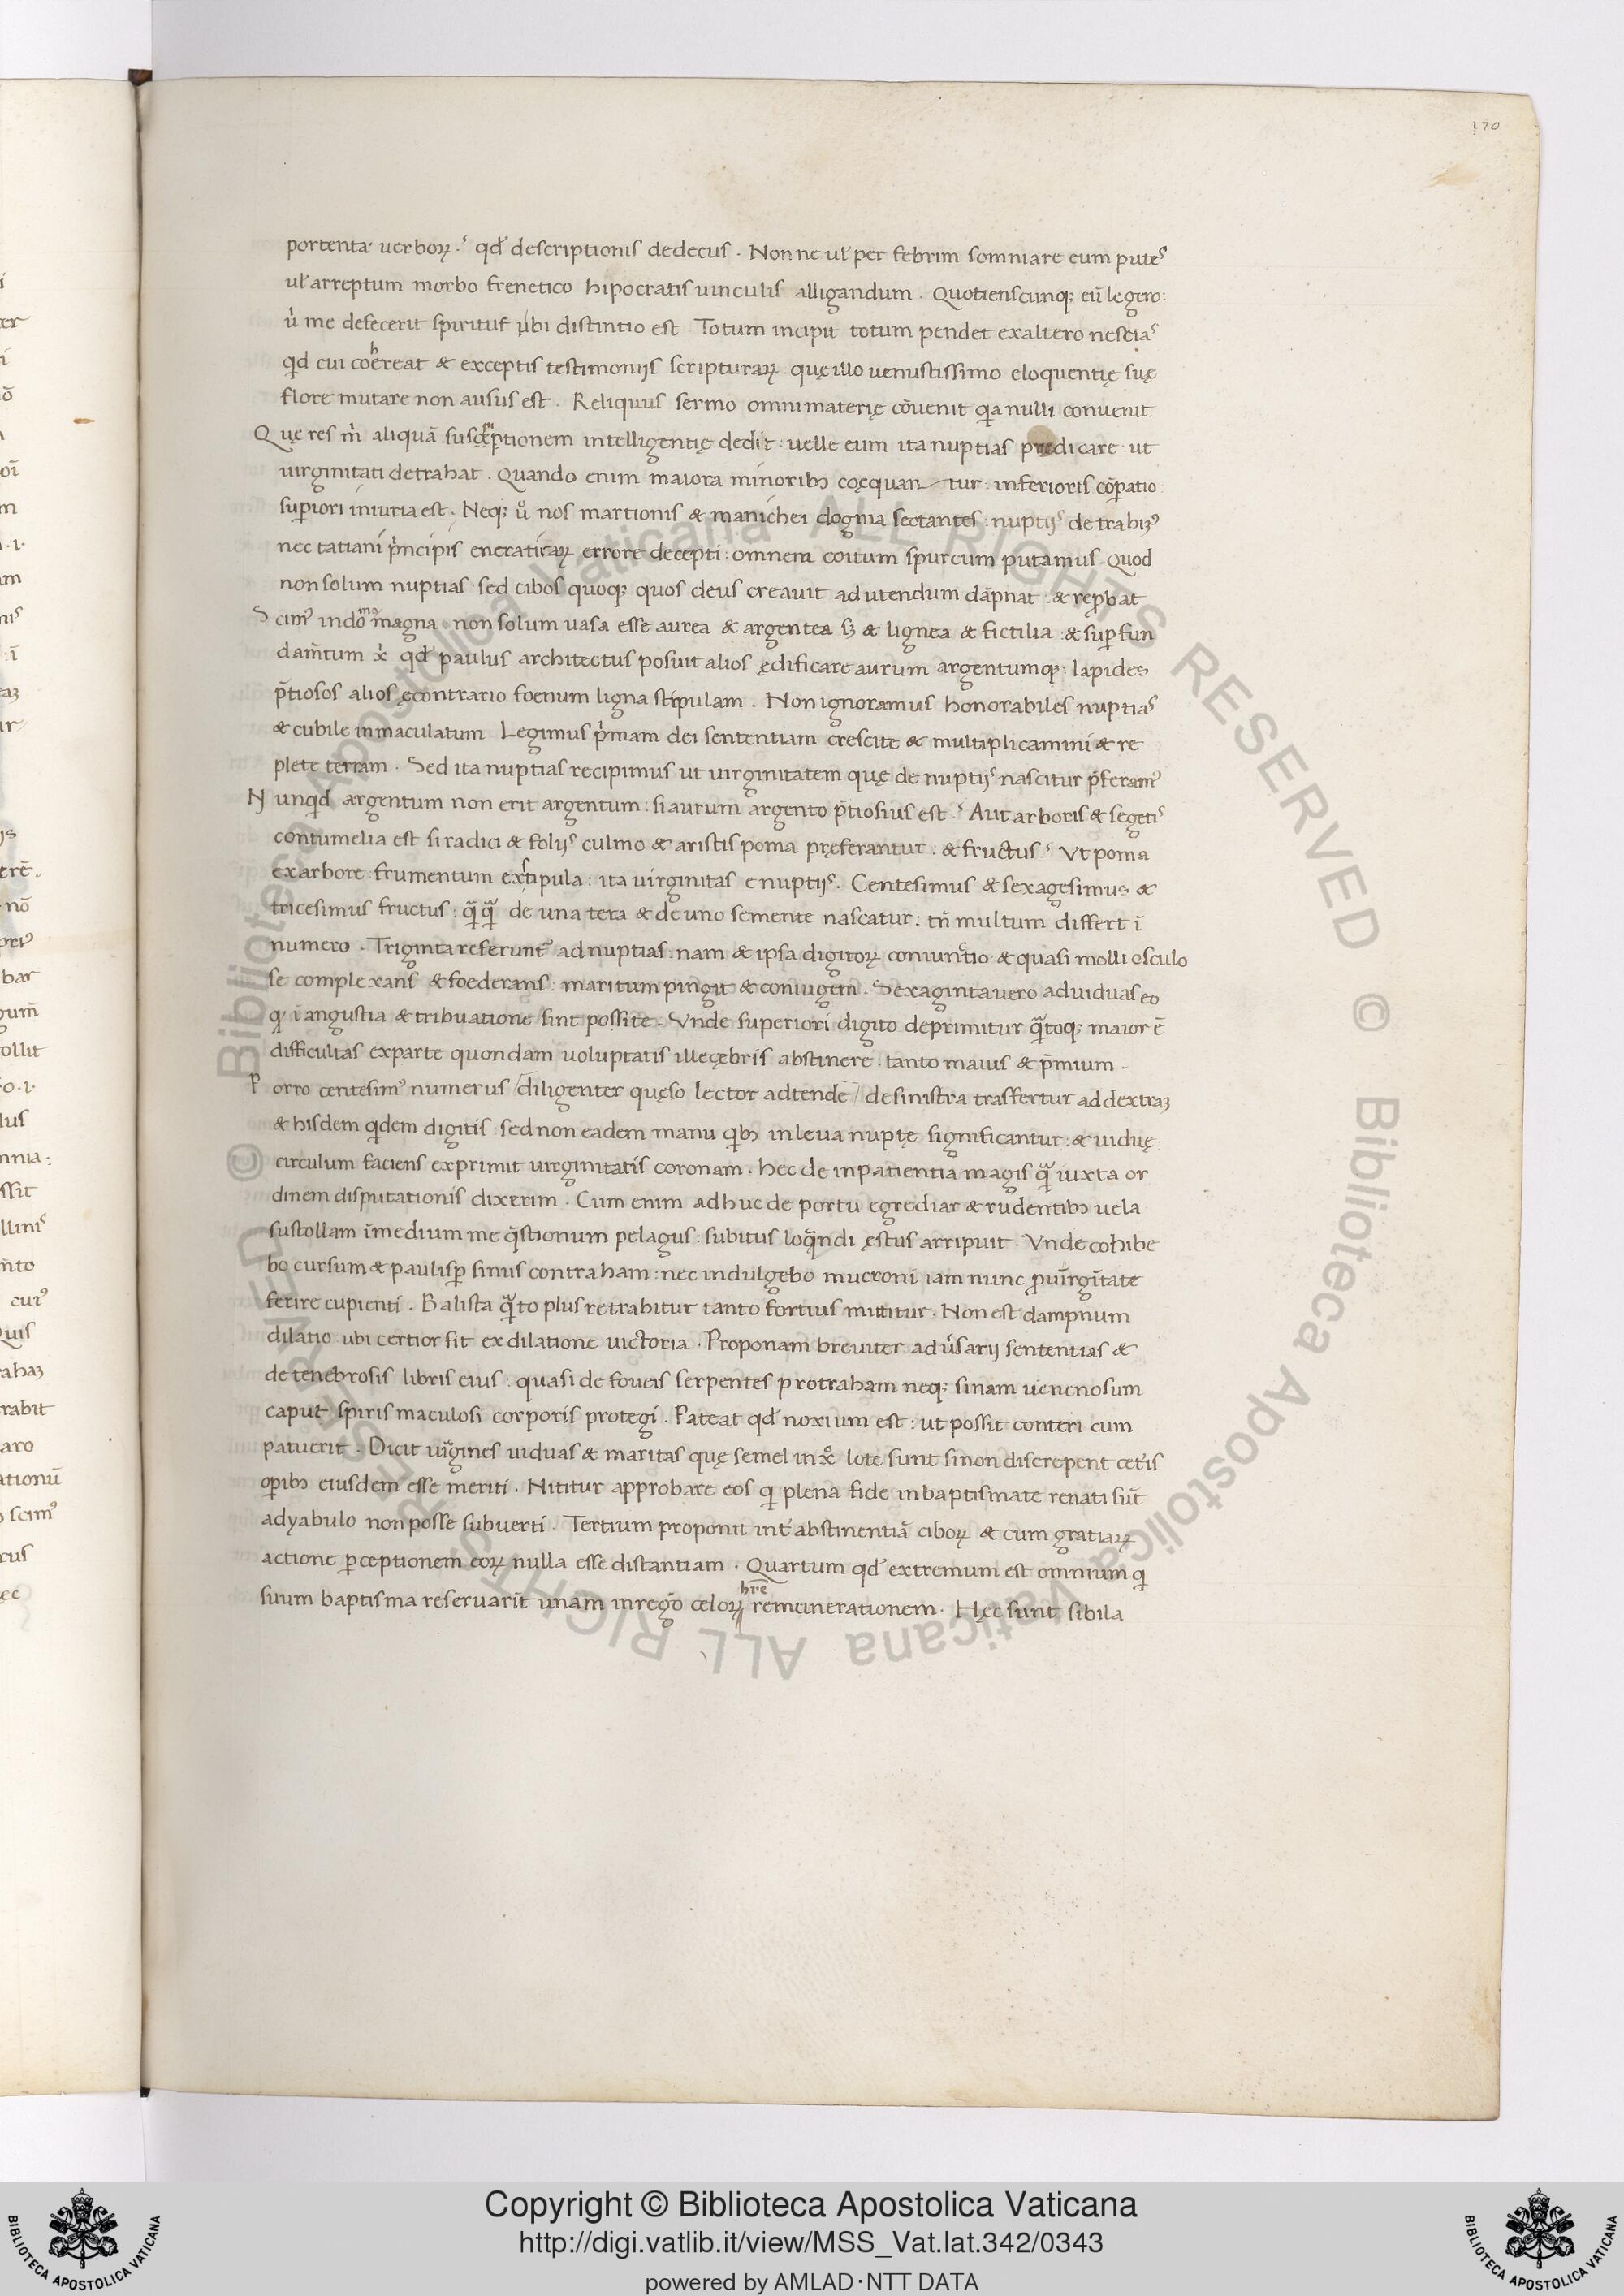 170
portenta uerboꝝ.ˢ qđ descriptionis dedecus. Non ne ul̓ per febrim somniare eum puteˢ
ul̓ arreptum morbo frenetico hipocratis uinculis alligandum. Quotienscunqꝫ eū legero:
ů me defecerit spiritus ubi distintio est. Totum incipit totum pendet ex altero nesciaˢ
qd cui cohereat & exceptis testimonijs scripturaꝝ. quę illo uenustissimo eloquentię suę
flore mutare non ausus est. Reliquus sermo omni materię cōuenit qa nulli conuenit.
Quę res m̓ aliquā susceptionem intelligentię dedit: uelle eum ita nuptias predicare ut
uirginitati detrahat. Quando enim maiora minoribꝫ coęquan tur: inferioris cōꝑatio
suꝑiori iniuria est. Neqꝫ u̓ nos martionis & manichei dogma sectantes: nuptijˢ detrahimꝰ
nec tatiani p̓ncipis encratitaꝝ errore decepti: omnem coitum spurcum putamus. Quod
non solum nuptias sed cibos quoqꝫ quos deus creauit ad utendum dāpnat: & reꝓbat
Scimꝰ in domo magna non solum uasa esse aurea & argentea sꝫ & lignea & fictilia: & suꝑ fun
dam̄tum xp̓i qđ paulus architectus posuit alios ędificare aurum argentumqꝫ: lapides
p̄tiosos alios ęcontrario foenum ligna stipulam. Non ignoramus honorabiles nuptiaˢ
& cubile inmaculatum Legimus p̓mam dei sententiam crescite & multiplicamini & re
plete terram. Sed ita nuptias recipimus ut uirginitatem quę de nuptijˢ nascitur p̄feramꝰ
Nunqđ argentum non erit argentum: si aurum argento p̄tiosius est.ˢ Aut arboris & segetiˢ
contumelia est si radici & folijˢ culmo & aristis poma pręferantur: & fructus.ˢ Vt poma
ex arbore frumentum ex stipula: ita uirginitas e nuptijˢ. Centesimus & sexagesimus &
tricesimus fructus: qͣ̄qͣ̄ de una tera & de uno semente nascatur: tn̄ multum differt ī
numero. Triginta referunt̃ ad nuptias. nam & ipsa digitoꝝ coniuntio & quasi molli osculo
se complexans & foederans: maritum pingit & coniugem. Sexaginta uero ad uiduas eo
qđ ī angustia & tribuatione sint possite. Vnde superiori digito deprimitur qͣ̄toqꝫ maior ē
difficultas ex parte quondam uoluptatis illecębris abstinere. tanto maius & p̄mium.
Porro centesimꝰ numerus / diligenter quęso lector adtende / de sinistra trasfertur ad dextraꝫ
& hisdem qdem digitis: sed non eadem manu qibꝫ in leua nuptę significantur: & uiduę
circulum faciens exprimit uirginitatis coronam. hec de inpatientia magis qͣ̄ iuxta or
dinem disputationis dixerim. Cum enim adhuc de portu egrediar & rudentibꝫ uela
sustollam ī medium me qͣ̄stionum pelagus: subitus loqͣ̄ndi ęstus arripuit. Vnde cohibe
bo cursum & paulisꝑ sinus contraham: nec indulgebo mucroni iam nunc ꝓ uirginitate
ferire cupienti. Balista qͣ̄to plus retrahitur tanto fortius mittitur. Non est dampnum
dilatio: ubi certior sit ex dilatione uictoria. Proponam breuiter adu̓sarij sententias &
de tenebrosis libris eius: quasi de foueis serpentes protraham neqꝫ sinam uenenosum
caput spiris maculosi corporis protegi. Pateat qđ noxium est: ut possit conteri cum
patuerit. Dicit uirgines uiduas & maritas quę semel in xp̊o lote sunt si non discrepent cet̓is
oꝑibꝫ eiusdem esse meriti. Nititur approbare eos q plena fide in baptismate renati sūt
a dyabulo non posse subuerti. Tertium proponit int̓ abstinentiā ciboꝝ & cum gratiaꝝ
actione ꝑceptionem eoꝝ nulla esse distantiam. Quartum qđ extremum est omnium q
suum baptisma reseruarīt unam in regō cęloꝝ hr̄e remunerationem. Hęc sunt sibila
Copyright © Biblioteca Apostolica Vaticana
http://digi.vatlib.it/view/MSS_Vat.lat.342/0343
powered by AMLAD·NTT DATA
© Biblioteca Apostolica Vaticana ALL RIGHTS RESERVED © Biblioteca Apostolica Vaticana ALL RIGHTS RESERVED
BIBLIOTECA APOSTOLICA VATICANA
BIBLIOTECA APOSTOLICA VATICANA